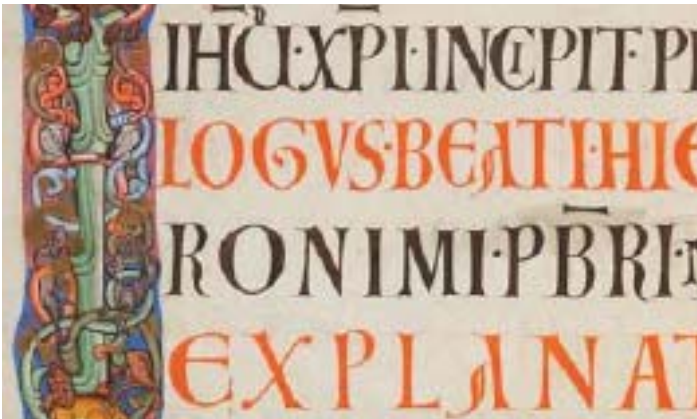 IH̅U·XP̅I·INCIPIT·P
LOGVS·BEATI·HIE
RONIMI·PB̅RI·
EXPLANAT